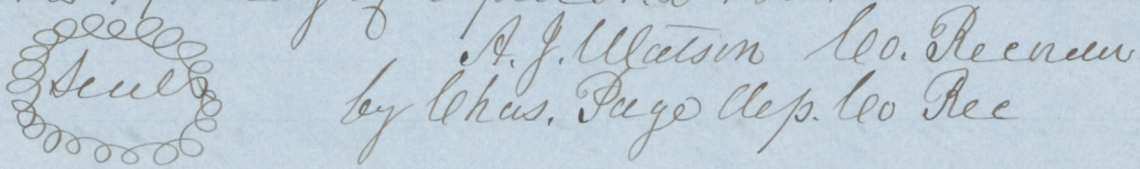 Seal A. J. Watson Co. Recorder
by Chas. Page Dep. Co Rec